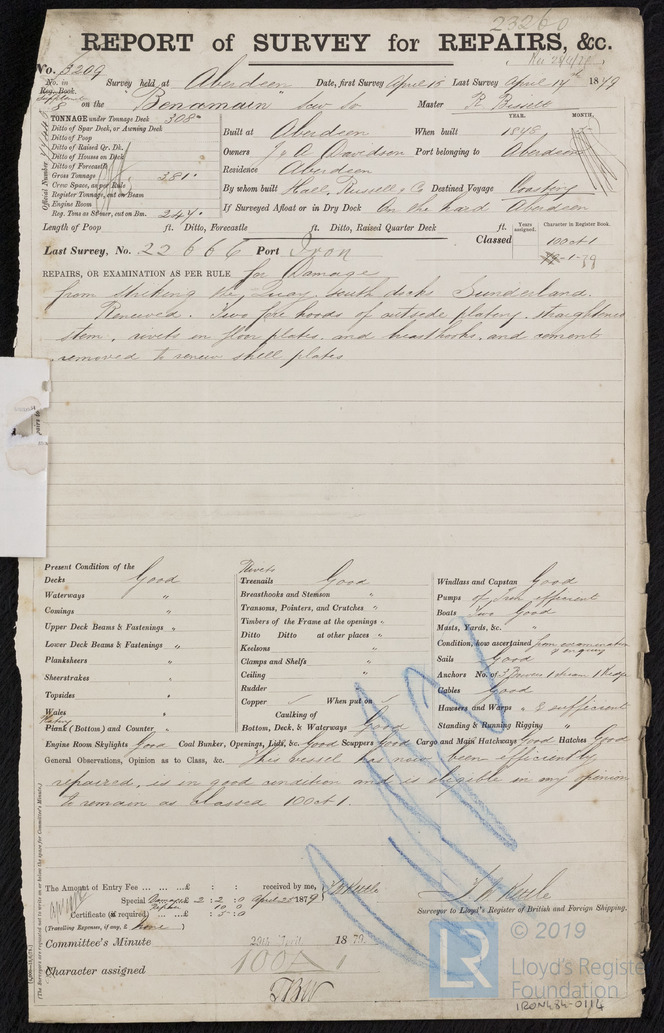 23260
REPORT of SURVEY for REPAIRS, &c.
No. 3209
No. in Reg. Book.
Survey held at Aberdeen Date, first Survey April 15 Last Survey April 17th 1879
8 on the "Benamain" Master R. Bissett
TONNAGE under Tonnage Deck 308
Ditto of Spar Deck, or Awning Deck
Ditto of Poop
Ditto of Raised Qr. Dk.
Ditto of Houses on Deck
Ditto of Forecastle
Gross Tonnage 381
Crew Space, as per Rule
Register Tonnage, cut on Beam
Engine Room
Reg. Tons as Steamer, cut on Bm. 247
Official Number
YEAR. MONTH.
Built at Aberdeen When built 1878
Owners J & A Davidson Port belonging to Aberdeen
Residence Aberdeen
By whom built Hall, Russell & Co Destined Voyage Coasting
If Surveyed Afloat or in Dry Dock On the hard Aberdeen
Length of Poop ft. Ditto, Forecastle ft. Ditto, Raised Quarter Deck ft.
Years assigned. Character in Register Book.
Classed 100 A 1
Last Survey, No. 22666 Port Iron
REPAIRS, OR EXAMINATION AS PER RULE for Damages
from striking the Quay, South docks Sunderland.
Renewed. Two fore hoods of outside plating, straightened
stem, rivets in floor plates, and breasthooks, and cement
removed to renew shell plates
Present Condition of the
Decks Good
Waterways "
Comings "
Upper Deck Beams & Fastenings "
Lower Deck Beams & Fastenings "
Planksheers "
Sheerstrakes "
Topsides "
Wales "
Plating
Plank (Bottom) and Counter "
Rivets
Treenails Good
Breasthooks and Stemson "
Transoms, Pointers, and Crutches "
Timbers of the Frame at the openings "
Ditto Ditto at other places "
Keelsons "
Clamps and Shelfs "
Ceiling "
Rudder "
Copper ✓ When put on ✓
Caulking of
Bottom, Deck, & Waterways Good
Windlass and Capstan Good
Pumps of Iron efficient
Boats Two Good
Masts, Yards, &c. "
Condition, how ascertained from examination & enquiry
Sails Good
Anchors No. of 3 Bowers 1 stream 1 Kedge
Cables Good
Hawsers and Warps " & sufficient
Standing & Running Rigging "
Engine Room Skylights Good Coal Bunker, Openings, Lids, &c. Good Scuppers Good Cargo and Main Hatchways Good Hatches Good
General Observations, Opinion as to Class, &c. This vessel has now been efficiently
repaired, is in good condition and is eligible in my opinion
to remain as classed 100 A 1.
The Amount of Entry Fee ... ... ...£ : : received by me,
Special Damage 2 : 2 : 0 April 25 1879
Certificate (if required) ... : 5 : 0
(Travelling Expenses, if any, £ None )
Surveyor to Lloyd's Register of British and Foreign Shipping.
Committee's Minute 29th April 1879
Character assigned 100 A 1
© 2019
LR
Lloyd's Register
Foundation
IRON484-0114